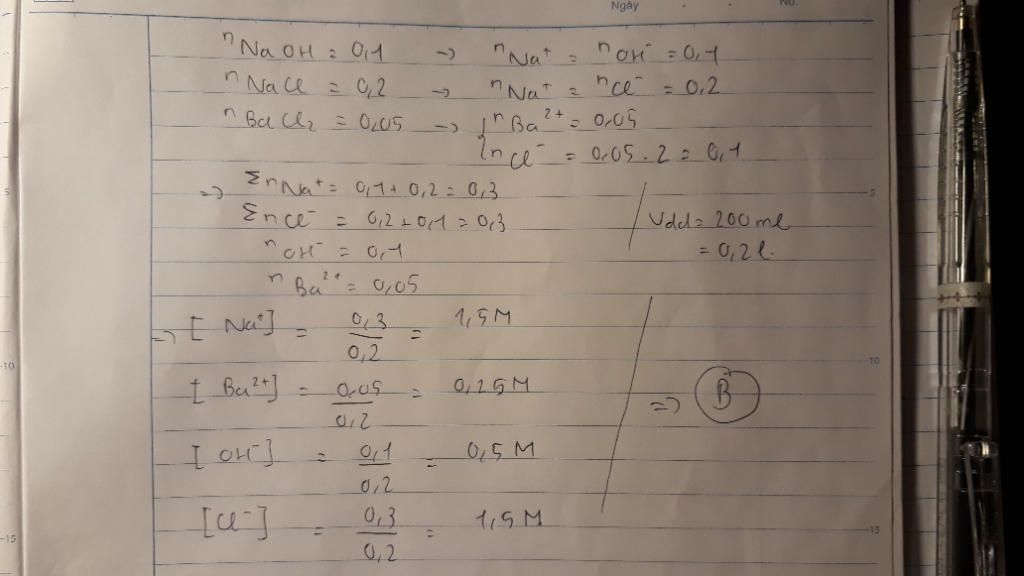 Ngày No.
nNaOH = 0,1 → nNa⁺ = nOH⁻ = 0,1
nNaCl = 0,2 → nNa⁺ = nCl⁻ = 0,2
nBaCl₂ = 0,05 → { nBa²⁺ = 0,05
nCl⁻ = 0,05 . 2 = 0,1
=> ΣnNa⁺ = 0,1 + 0,2 = 0,3
ΣnCl⁻ = 0,2 + 0,1 = 0,3
Vdd = 200 ml
nOH⁻ = 0,1
= 0,2 l.
nBa²⁺ = 0,05
=> [Na⁺] = 0,3/0,2 = 1,5 M
[Ba²⁺] = 0,05/0,2 = 0,25 M
=> B
[OH⁻] = 0,1/0,2 = 0,5 M
[Cl⁻] = 0,3/0,2 = 1,5 M
5
5
10
10
15
15